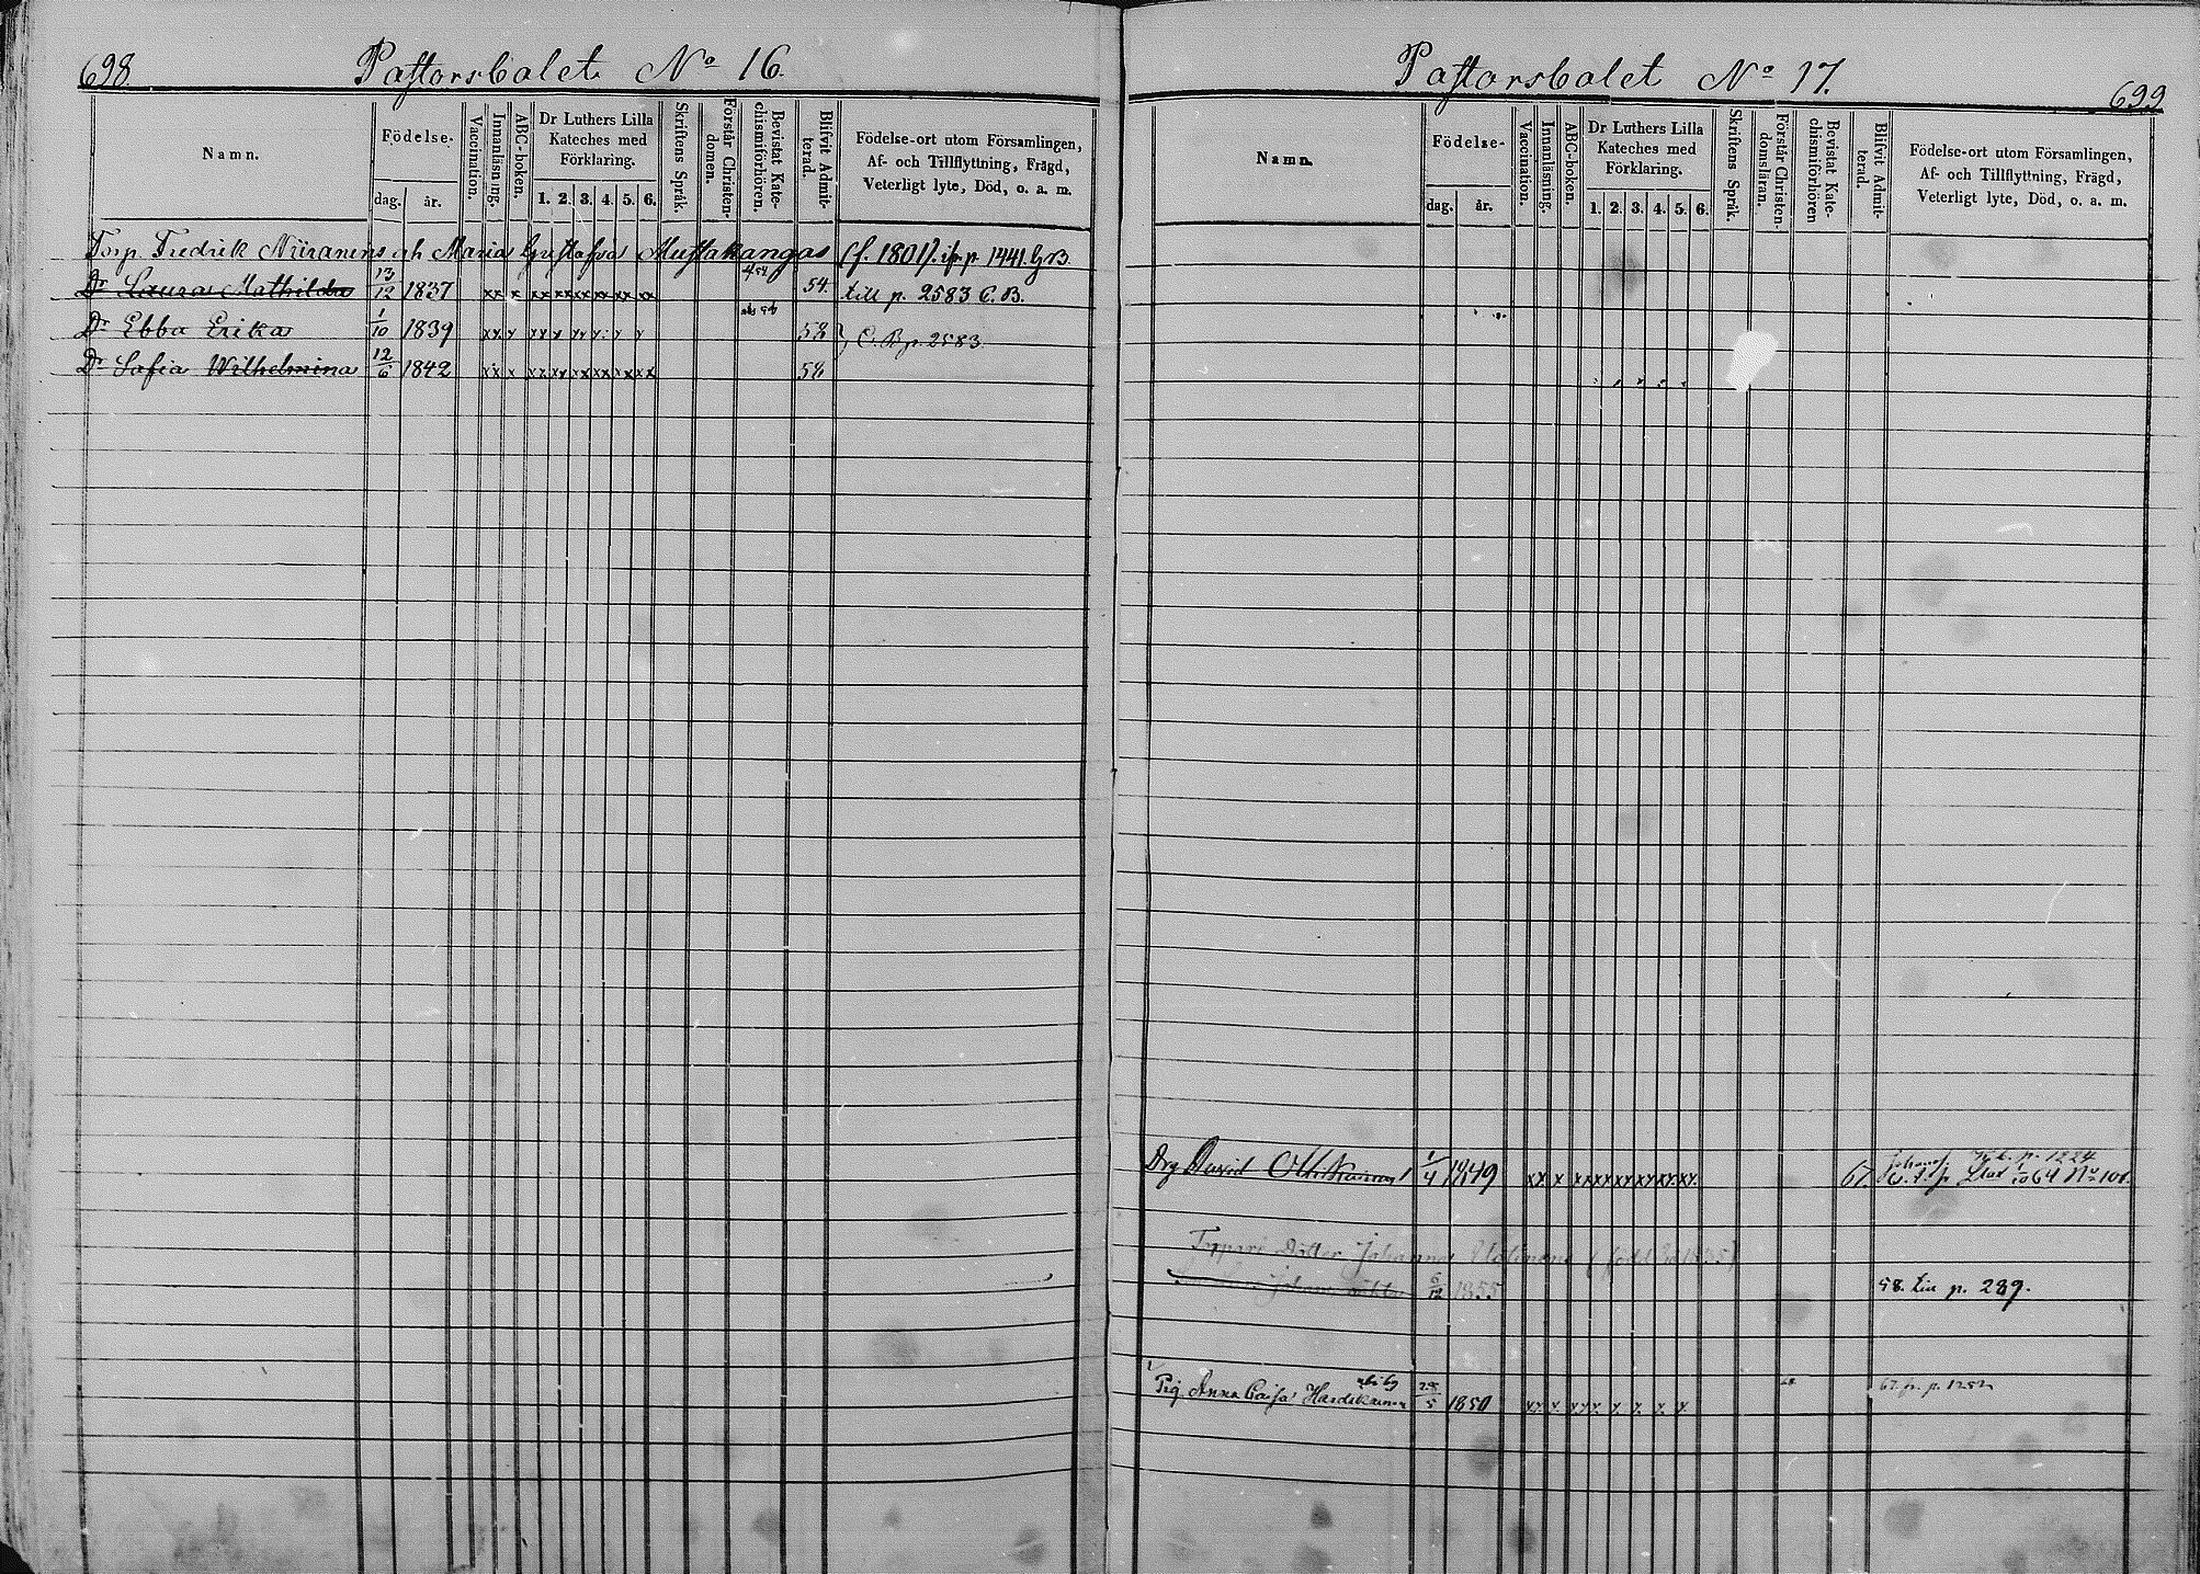 698
Pastorsbolet No 16.
Namn.
Födelse.
dag.
år.
Vaccination.
Innanläsning.
ABC-boken.
Dr Luthers Lilla
Kateches med
Förklaring.
1. 2. 3. 4. 5. 6.
Skriftens Språk.
Förstår Christen-
domen.
Bevistat Kate-
chismiförhören.
Blifvit Admit-
terad.
Födelse-ort utom Församlingen,
Af- och Tillflyttning, Frägd,
Veterligt lyte, Död, o. a. m.
Torp. Fredrik Niiranens och Maria Gustafva Mustakangas (f. 1801). p. 1441.
Dr Laura Mathilda 13/12 1837 xx x xx xx xx xx xx xx 54. till p. 2583 C.B.
Dr Ebba Erika 1/10 1839 58 C.B.p. 2583
Dr Sofia Wilhelmina 12/6 1842 xx x xx xx xx xx xx xx 58
Pastorsbolet No 17.
699
Namn.
Födelse-
dag.
år.
Vaccination.
Innanläsning.
ABC-boken.
Dr Luthers Lilla
Kateches med
Förklaring.
1. 2. 3. 4. 5. 6.
Skriftens Språk.
Förstår Christen-
domsläran.
Bevistat Kate-
chismiförhören
Blifvit Admit-
terad.
Födelse-ort utom Församlingen,
Af- och Tillflyttning, Frägd,
Veterligt lyte, Död, o. a. m.
p. 1224
Drg David 1/4 1849 xx x xx xx xx xx xx xx 67. 64 No 101.
Dotter Johanna
6/12 1855 58. till p. 289.
Pig. Anna Caisa 1850 p. 1252